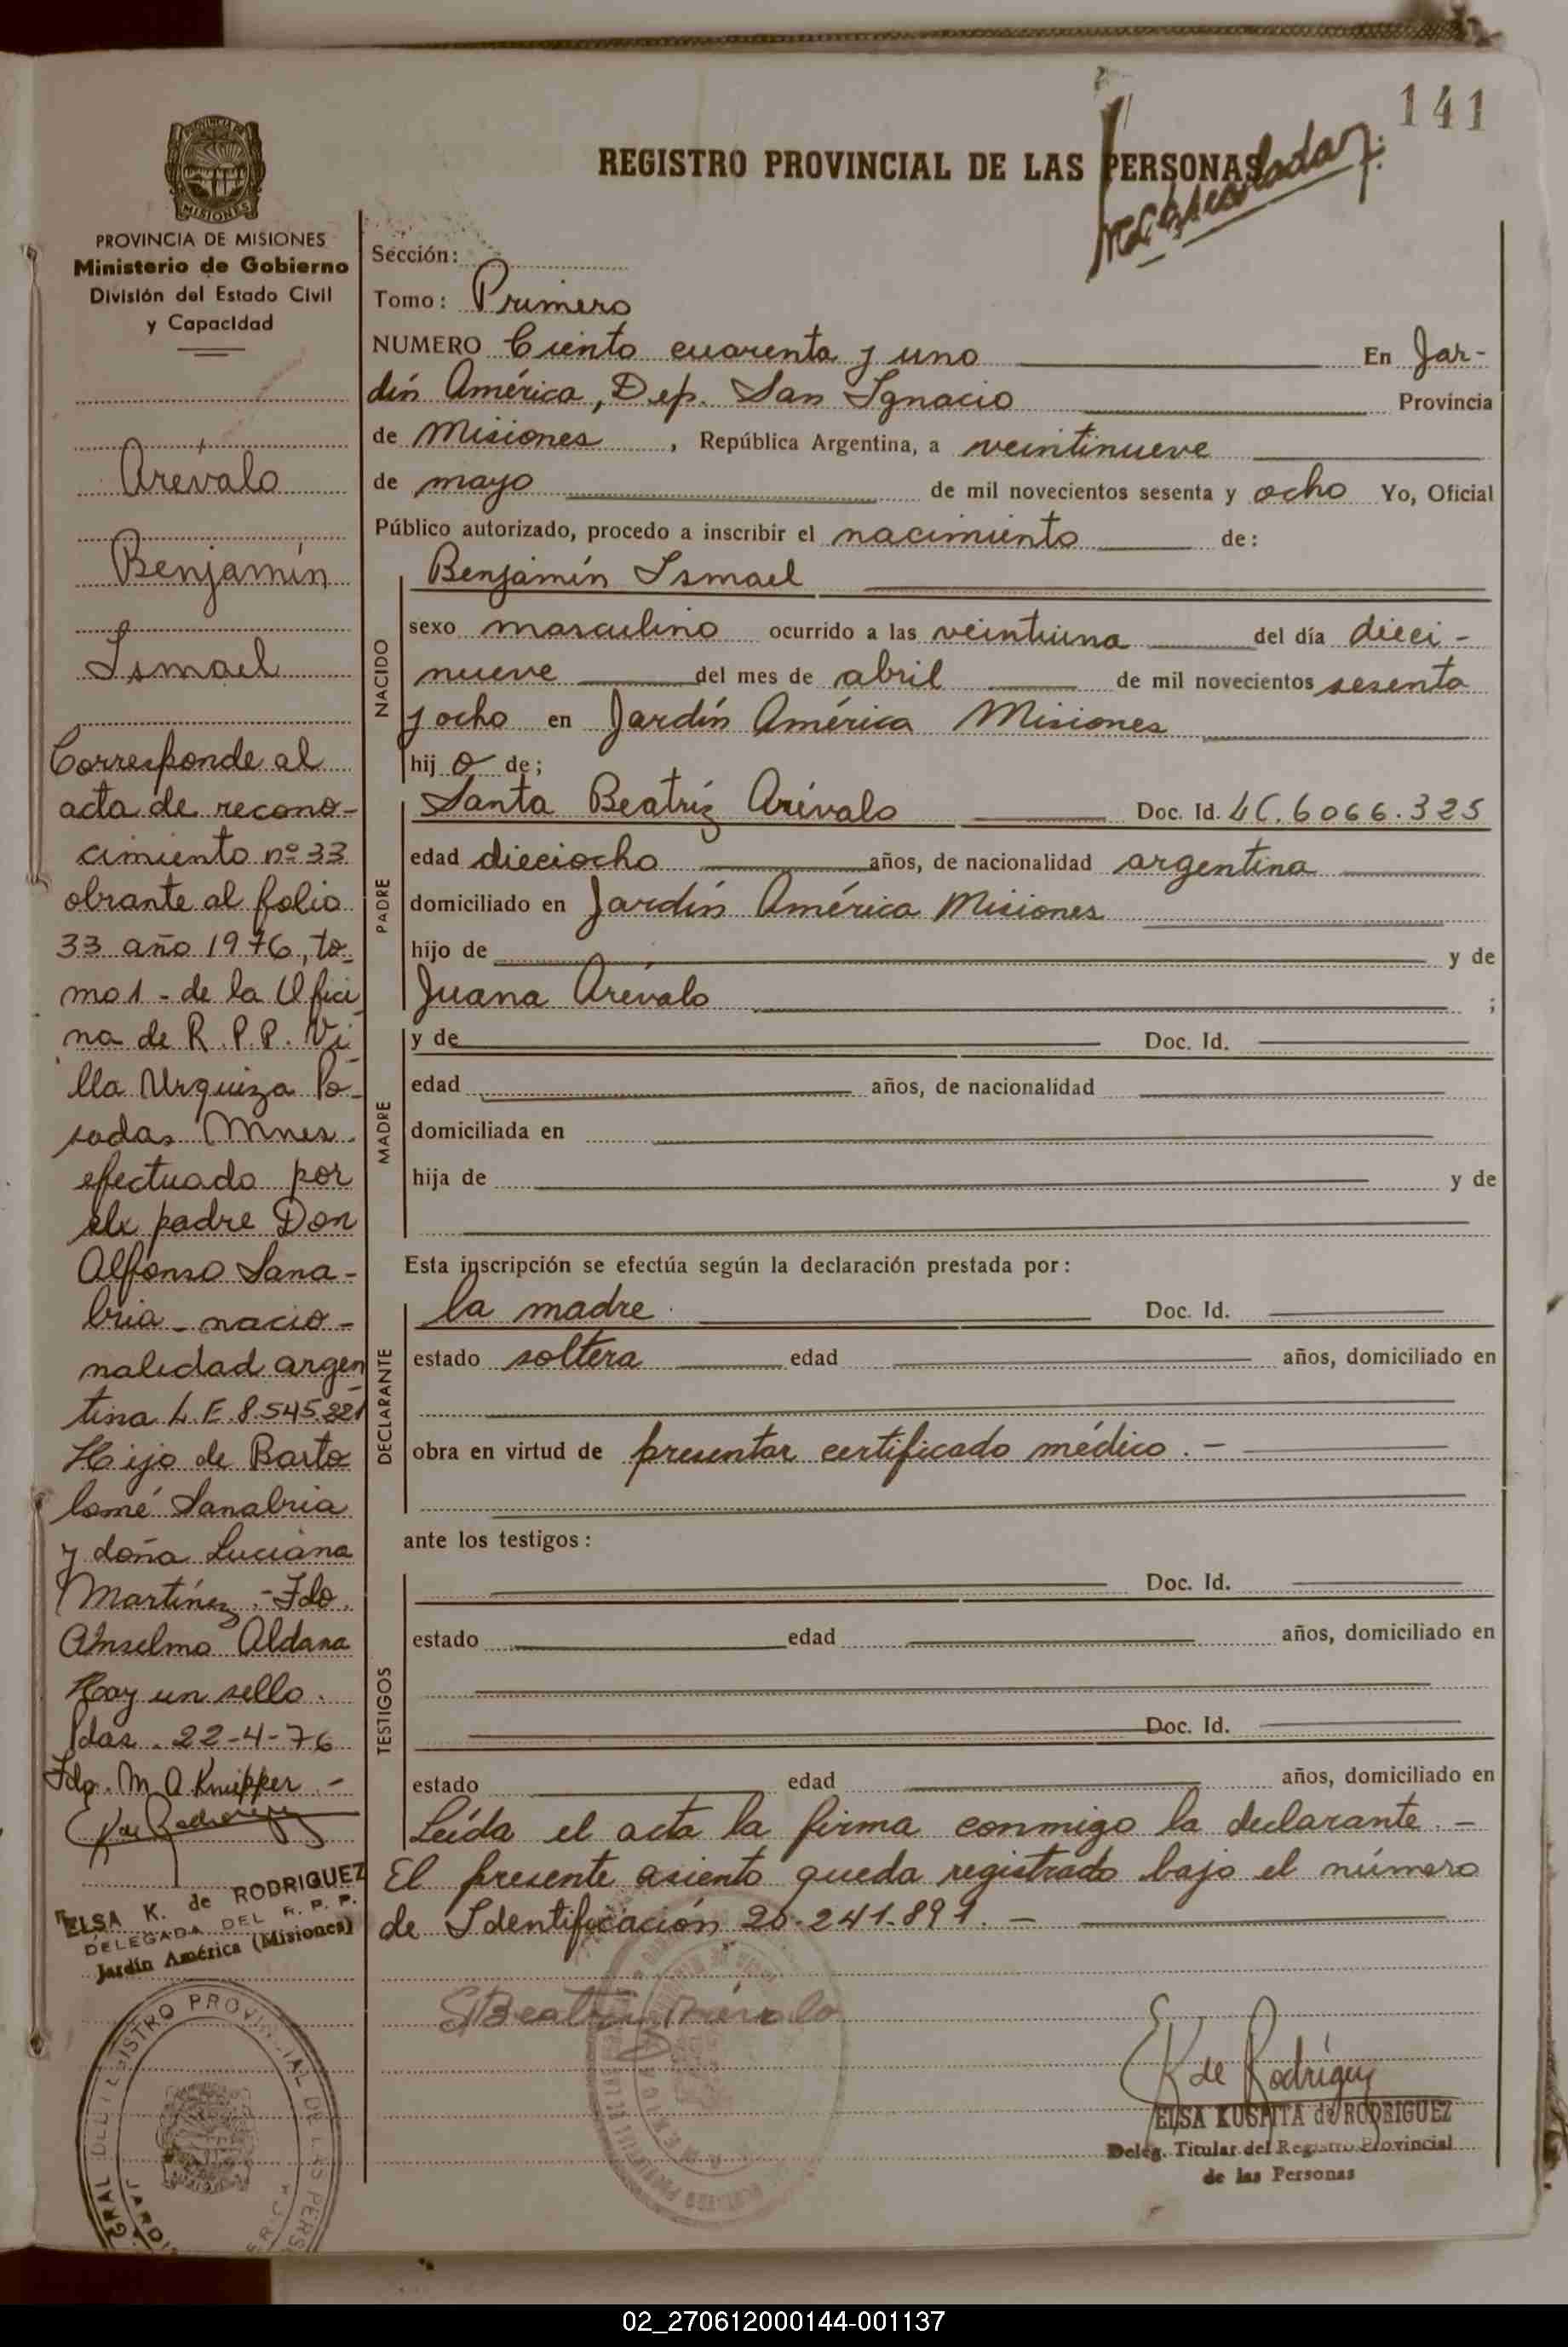 141
REGISTRO PROVINCIAL DE LAS PERSONAS
PROVINCIA DE MISIONES
Ministerio de Gobierno
División del Estado Civil
y Capacidad
Arévalo
Benjamín
Ismael
Corresponde al
acta de recono-
cimiento nº 33
obrante al folio
33 año 1976, to-
mo 1 - de la Ofici
na de R. P. P. Vi-
lla Urquiza Po-
sadas Mnes.
efectuado por
el padre Don
Alfonso Sana-
bria - nacio-
nalidad argen
tina L. E 8.545.221
Hijo de Barto
lomé Sanabria
y doña Luciana
Martínez.- Fdo.
Anselmo Aldana
Hay un sello.
Pdas. 22-4-76
Fdo. M. A. Knipper.-
ELSA K. de RODRIGUEZ
DELEGADA DEL R. P. P.
Jardín América (Misiones)
Sección:
Tomo: Primero
NUMERO Ciento cuarenta y uno En Jar-
dín América, Dep. San Ignacio Provincia
de Misiones, República Argentina, a veintinueve
de mayo de mil novecientos sesenta y ocho Yo, Oficial
Público autorizado, procedo a inscribir el nacimiento de:
NACIDO
Benjamín Ismael
sexo masculino ocurrido a las veintiuna del día dieci-
nueve del mes de abril de mil novecientos sesenta
y ocho en Jardín América Misiones
hij o de;
PADRE
Santa Beatríz Arévalo Doc. Id. LC. 6066.325
edad dieciocho años, de nacionalidad argentina
domiciliado en Jardín América Misiones
hijo de y de
Juana Arévalo ;
MADRE
y de Doc. Id.
edad años, de nacionalidad
domiciliada en
hija de y de
Esta inscripción se efectúa según la declaración prestada por:
DECLARANTE
la madre Doc. Id.
estado soltera edad años, domiciliado en
obra en virtud de presentar certificado médico.-
ante los testigos:
TESTIGOS
Doc. Id.
estado edad años, domiciliado en
Doc. Id.
estado edad años, domiciliado en
Leída el acta la firma conmigo la declarante.-
El presente asiento queda registrado bajo el número
de Identificación 20.241.891.-
SBeatriz Arévalo
EK de Rodríguez
ELSA KUSPITA de RODRIGUEZ
Deleg. Titular del Registro Provincial
de las Personas
02_270612000144-001137